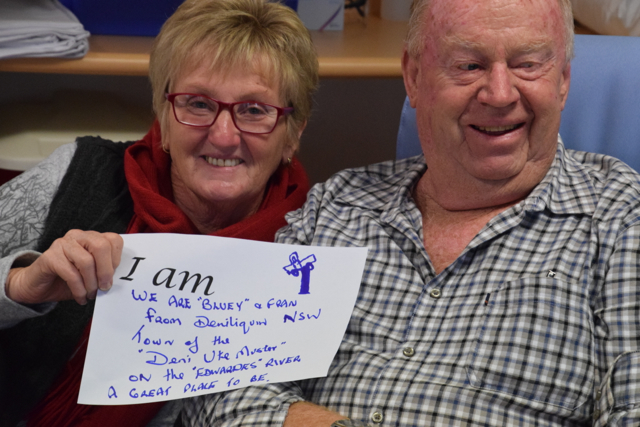 I am
WE ARE "BLUEY" & FRAN
from Deniliquin NSW
Town of the
"Deni Ute Muster"
ON the "EDWARDES" RIVER
A GREAT PLACE TO BE.